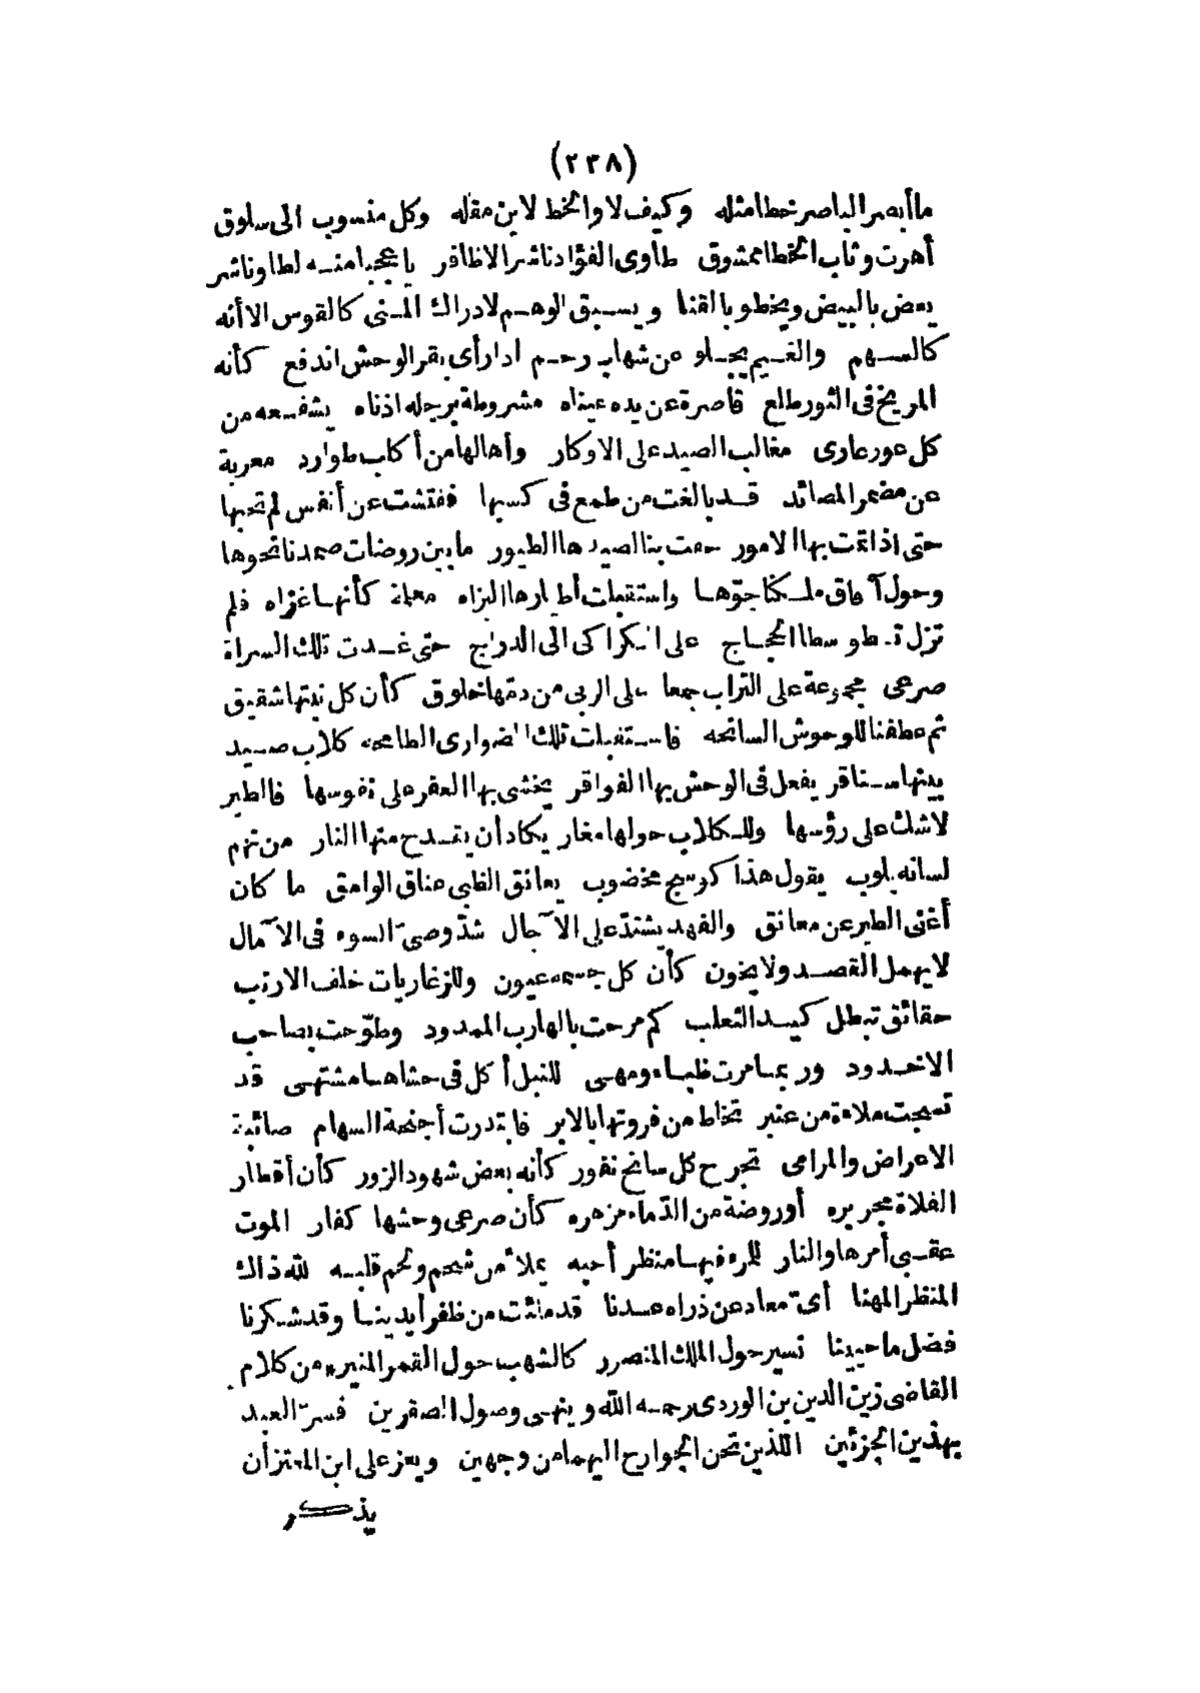 (٢٣٨)
ما أبصر الباصر خطا مثله وكيف لا والخط لابن مقله وكل منسوب الى سلوق
أهرت وثاب الخطا ممشوق طاوى الفؤاد ناشر الاظافر يا عجبا منه لطاو ناشر
يعض بالبيض ويخطو بالقنا ويسبق الوهم لادراك المنى كالقوس الا أنه
كالسهم والغيم يجلو عن شهاب رجم اذا رأى بقر الوحش اندفع كأنه
المريخ فى الثور طلع قاصرة عن يده عيناه مشروطة برجله اذناه يشفعه من
كل عور عارى مغالب الصيد على الاوكار وأهالها من أكاب طوارد معربة
عن مضمر المصائد قد بالغت من طمع فى كسبها ففتشت عن أنفس لم تحبها
حتى اذا تمت بها الامور حفت بنا لصيدها الطيور ما بين روضات صعدنا نحوها
وحول آفاق ملكنا جوّها واستقبلت أطيارها البزاه معلمة كأنها غزاه فلم
تزل تسطو سطا الحجاج على الكراكى الى الدراج حتى غدت تلك السراة
صرعى مجموعة على التراب جمعا على الربى من دمها خلوق كأن كل نبتها شقيق
ثم عطفنا للوحوش السانحه فاستقبلت تلك الضوارى الطامحه كلاب صيد
بينها سناقر يفعل فى الوحش بها الفواقر يخشى بها العقر على نفوسها فالطير
لا شك على رؤسها وللكلاب حولها مغار يكاد أن يقدح منها النار من نهم
لسانه يلوب يقول هذا كوسج مخضوب يعانق الظبى عناق الوامق ما كان
أغنى الطير عن معانق والفهد يشتدّ على الآجال شدّ وصىّ السوء فى الآمال
لا يهمل القصد ولا يخون كأن كل جسمه عيون وللزغاريات خلف الارنب
حقائق تبطل كيد الثعلب كم مرحت بالهارب الممدود وطوّحت بصاحب
الاخدود وربما مرت ظباء ومهى للنبل أكل فى حشاها مشتهى قد
نسجت ملاءة من عنبر تخاط من فروتها بالابر فابتدرت أجنحة السهام صائبة
الاعراض والمرامى تجرح كل سانح نفور كأنه بعض شهود الزور كأن أقطار
الفلاة مجريره أو روضة من الدّماء مزهره كأن صرعى وحشها كفار الموت
عقبى أمرها والنار للمرء فيها منظر أحبه يملأ من شحم ولحم قلبه لله ذاك
المنظر المهنا أىّ معاد عن ذراه عدنا قد ملئت من ظفر أيدينا وقد شكرنا
فضل ما حبينا نسير حول الملك المنصور كالشهب حول القمر المنير* من كلام
القاضى زين الدين بن الوردى رحمه الله وينهى وصول الصقرين فسرّ العبد
بهذين الجزئين اللذين تحن الجوارح اليهما من وجهين ويعز على ابن المعتز أن
يذكر